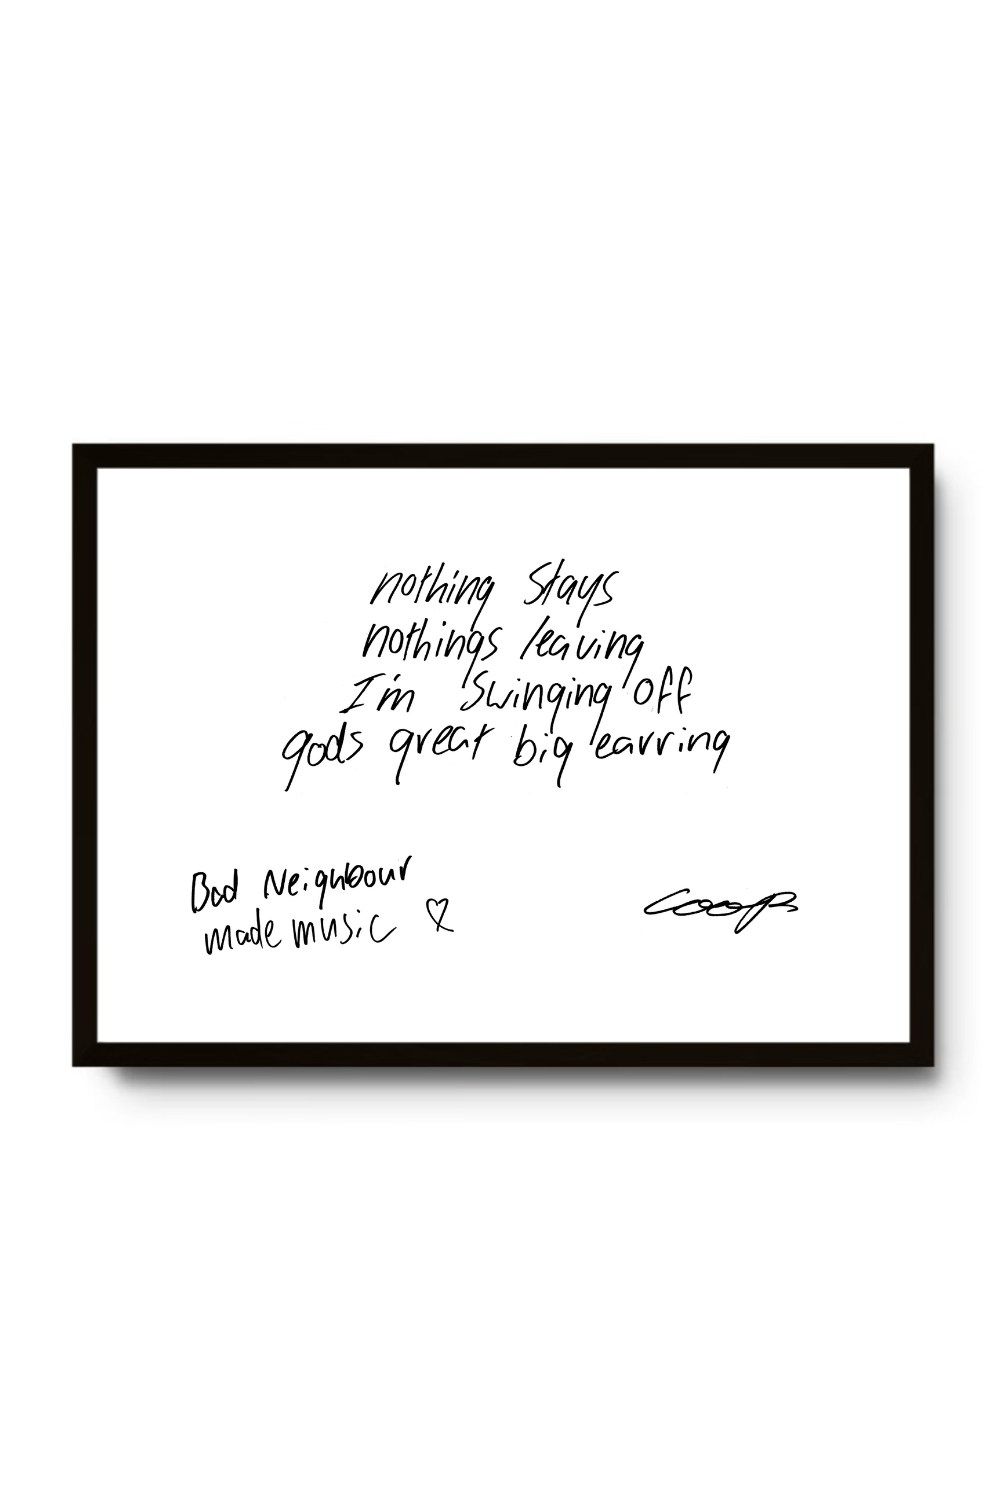 nothing stays
nothings leaving
I'm swinging off
gods great big earring
Bad Neighbour
made music
Coops